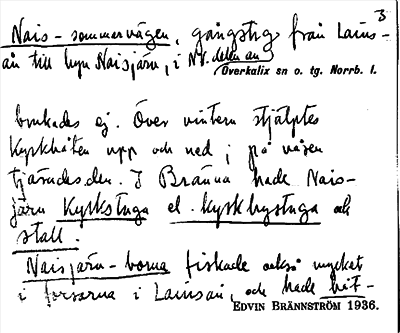 3
Nais-sommarvägen, gångstig från Lains-
än till byn Naisjärv, i NV. delen av
Överkalix sn o. tg. Norrb. l.
brukades ej. Över vintern stjälptes
kyrkbåten upp och ned; på våren
tjärades den. I Bränna hade Nais-
järv kyrkstuga el. kyrkbystuga och
stall.
Naisjärv-borna fiskade också mycket
i forsarna i Lainsån, och hade båt-
EDVIN BRÄNNSTRÖM 1936.